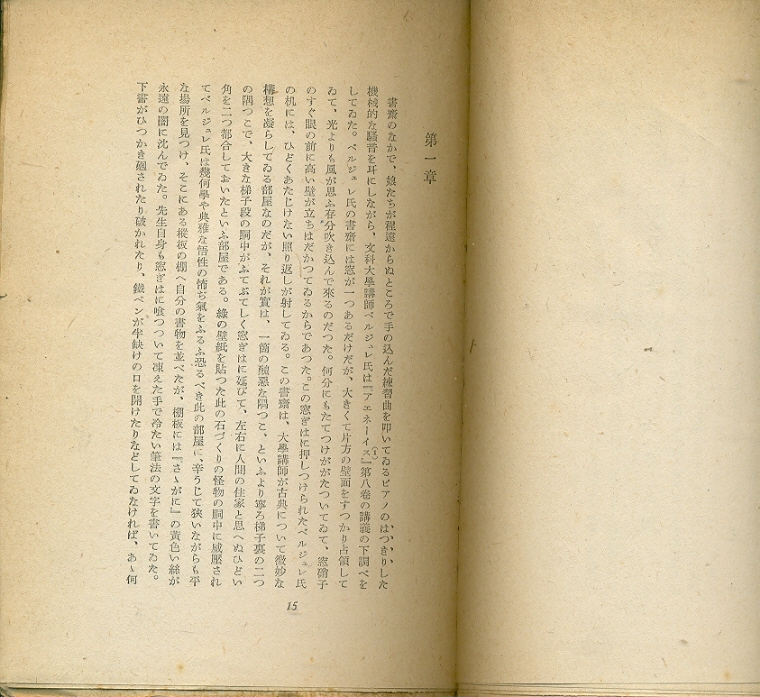 第一章
書齋のなかで、娘たちが程遠からぬところで手の込んだ練習曲を叩いてゐるピアノのはつきりした
機械的な騷音を耳にしながら、文科大學講師ベルジュレ氏は『アエネーイス』(1)第八卷の講義の下調べを
してゐた。ベルジュレ氏の書齋には窓が一つあるだけだが、大きくて片方の壁面をすつかり占領して
ゐて、光よりも風が思ふ存分吹き込んで來るのだつた。何分にもたてつけががたついてゐて、窓硝子
のすぐ眼の前に高い壁が立ちはだかつてゐるからであつた。この窓ぎはに押しつけられたベルジュレ氏
の机には、ひどくあたじけない照り返しが射してゐる。この書齋は、大學講師が古典について微妙な
構想を凝らしてゐる部屋なのだが、それが實は、一箇の醜惡な隅つこ、といふより寧ろ梯子裏の二つ
の隅つこで、大きな梯子段の胴中がふてぶてしく窓ぎはに延びて、左右に人間の住家と思へぬひどい
角を二つ都合しておいたといふ部屋である。綠の壁紙を貼つた此の石づくりの怪物の胴中に威壓され
てベルジュレ氏は幾何學や典雅な悟性の怖ぢ氣をふるふ恐るべき此の部屋に、辛うじて狹いながらも平
な場所を見つけ、そこにある樅板の棚へ自分の書物を並べたが、棚板には『さゝがに』の黃色い絲が
永遠の闇に沈んでゐた。先生自身も窓ぎはに喰つついて凍えた手で冷たい筆法の文字を書いてゐた。
下書がひつかき𢌞されたり破かれたり、鐵ペンが半缺けの口を開けたりなどしてゐなければ、あゝ何
15